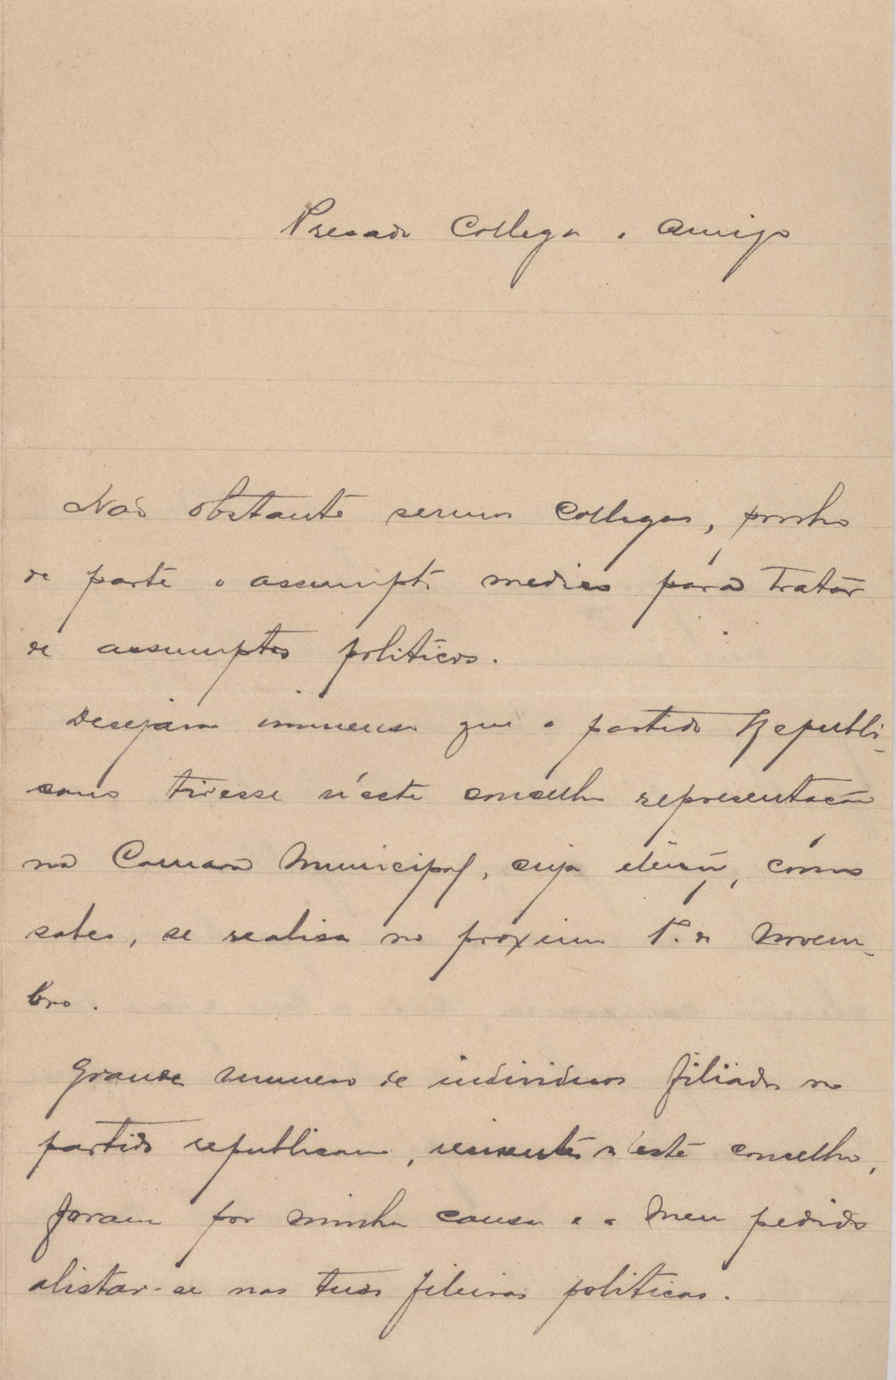 Presado Collega e amigo
Não obstante sermos collegas, ponho
de parte o assumpto medico para tratar
de assumptos politicos.
Desejava immenso que o partido Republi-
cano tivesse n'este concelho representação
na Camara Municipal, cuja eleição, como
sabes, se realisa no proximo 1º. de Novem-
bro.
Grande numero de individuos filiados no
partido republicano, residentes n'este concelho,
foram por minha causa e a meu pedido
alistar-se nas tuas fileiras politicas.